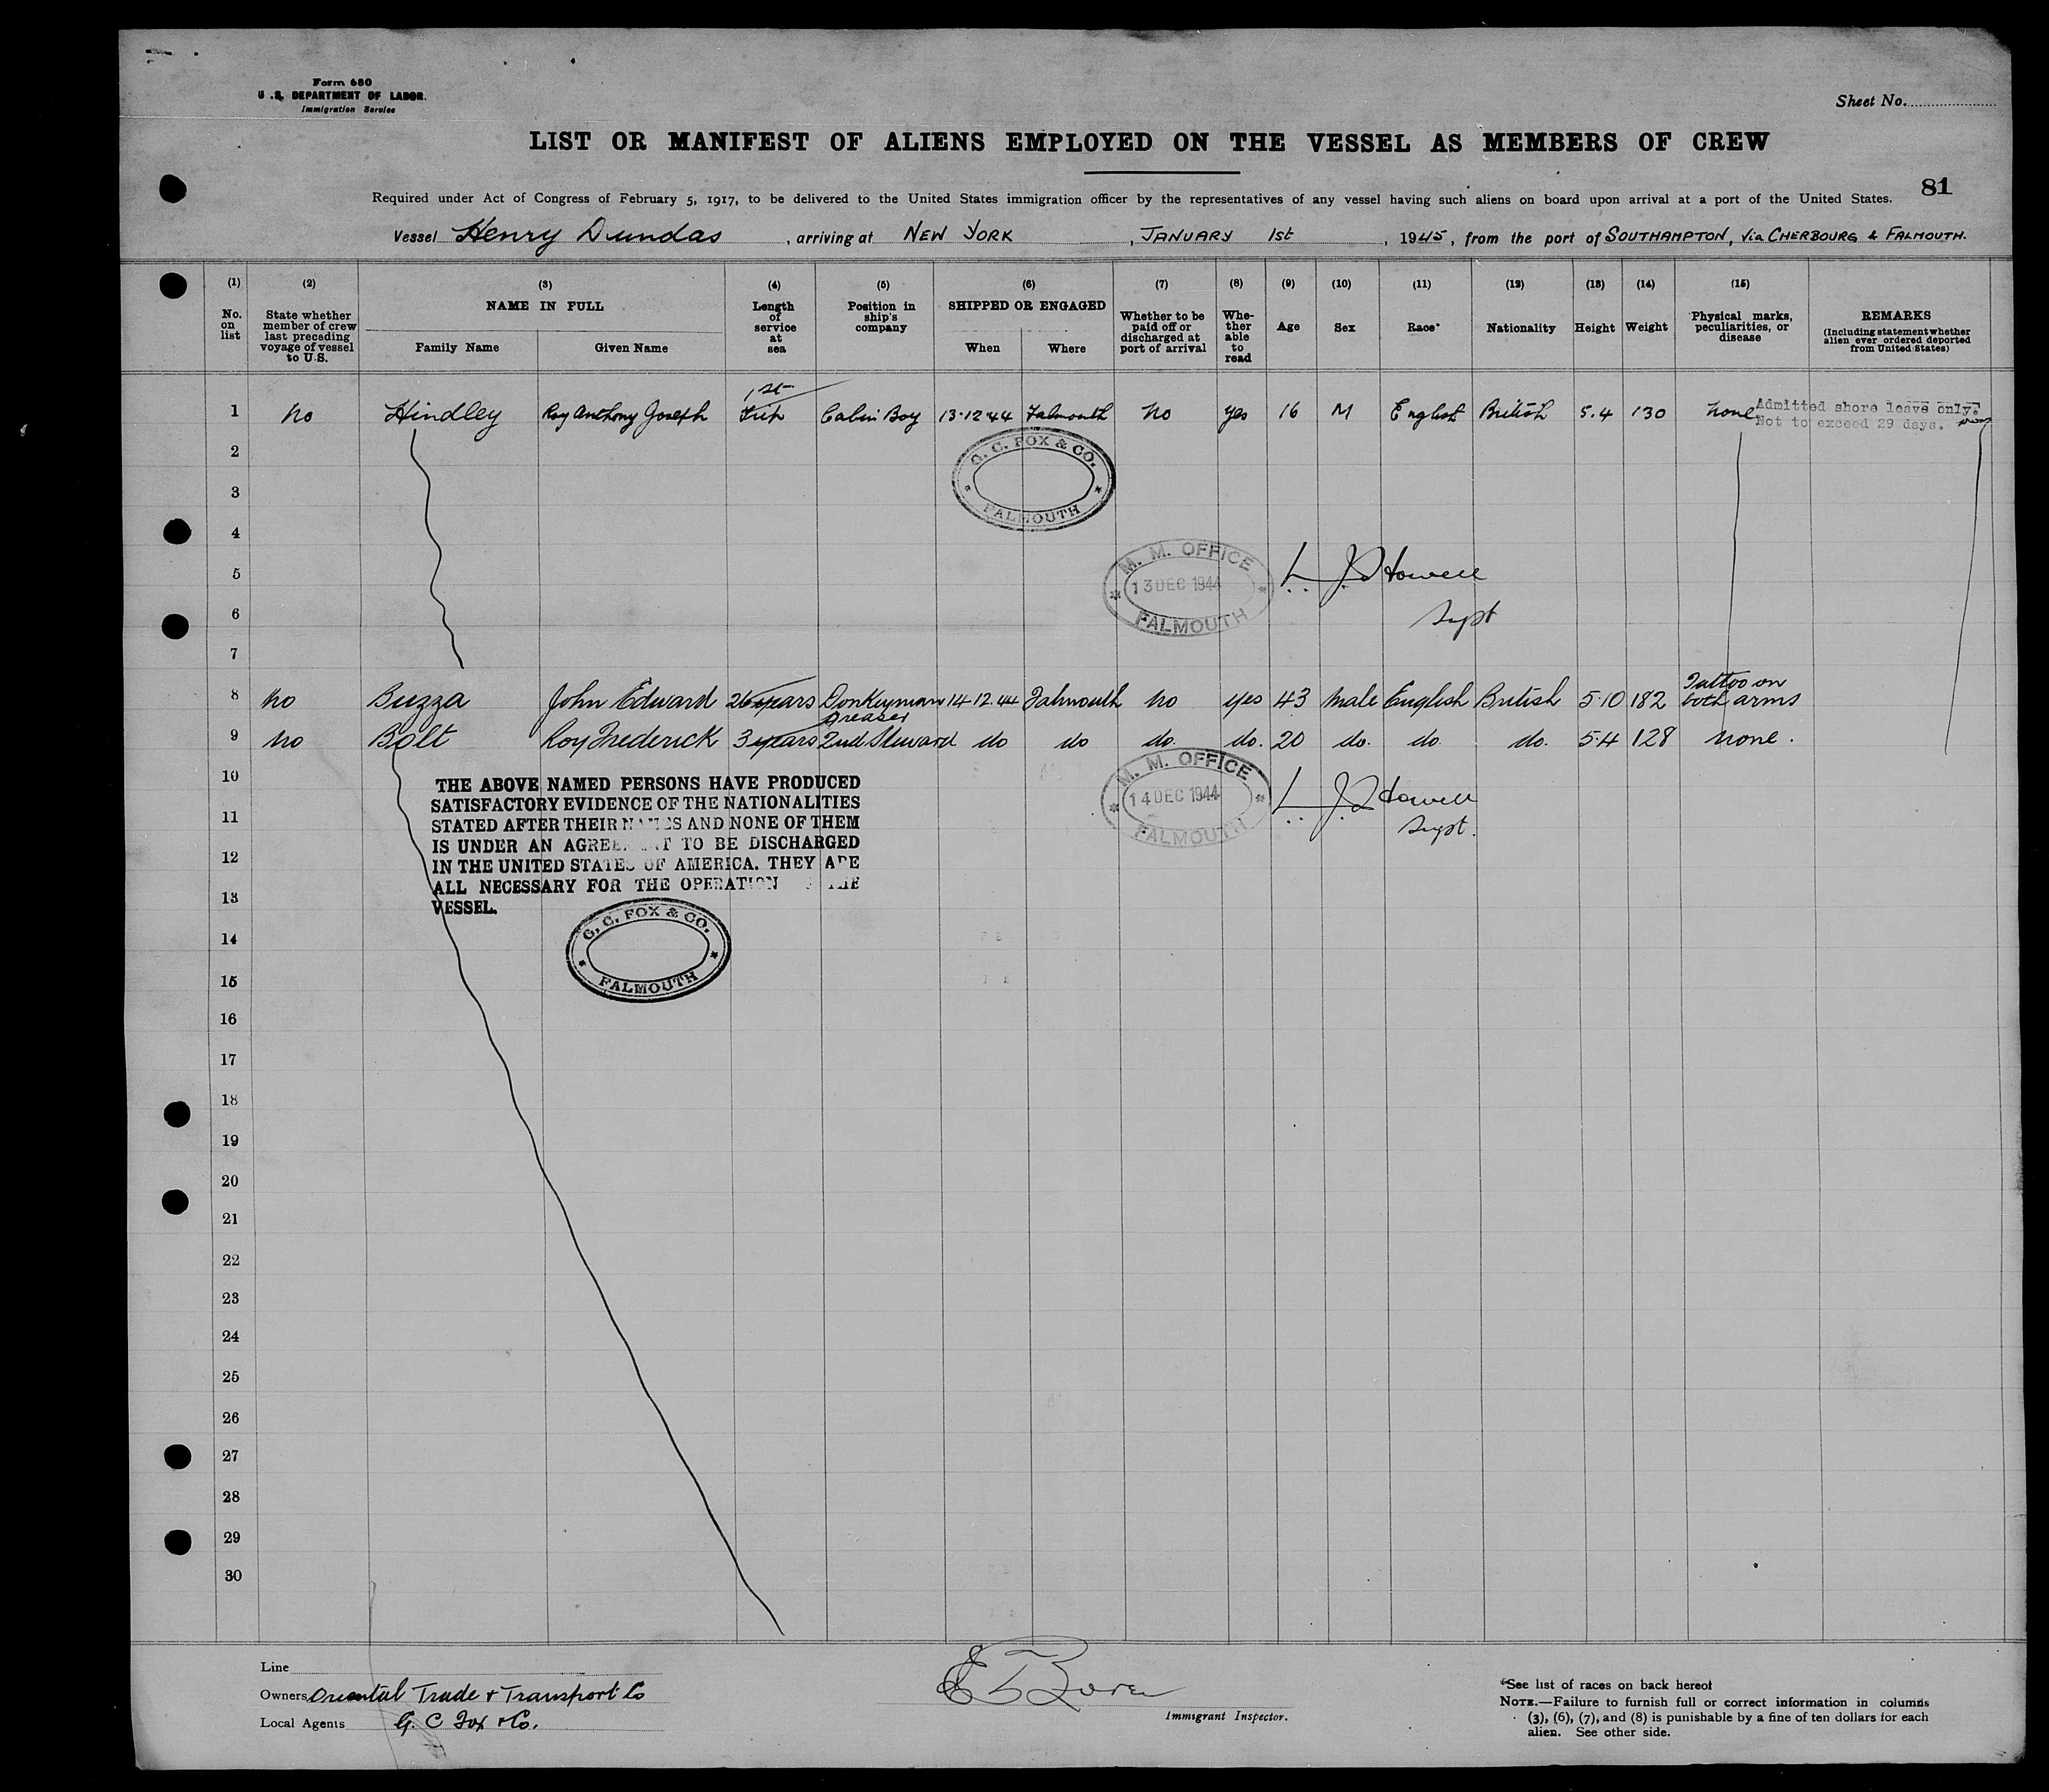 Form 680
U.S. DEPARTMENT OF LABOR.
Immigration Service
Sheet No.
LIST OR MANIFEST OF ALIENS EMPLOYED ON THE VESSEL AS MEMBERS OF CREW
81
Required under Act of Congress of February 5, 1917, to be delivered to the United States immigration officer by the representatives of any vessel having such aliens on board upon arrival at a port of the United States.
Vessel Henry Dundas, arriving at NEW YORK, JANUARY 1st, 1945, from the port of SOUTHAMPTON, Via CHERBOURG & FALMOUTH.
(1) (2) (3) (4) (5) (6) (7) (8) (9) (10) (11) (12) (13) (14) (15)
No. on list
State whether member of crew last preceding voyage of vessel to U.S.
NAME IN FULL
Family Name Given Name
Length of service at sea
Position in ship's company
SHIPPED OR ENGAGED
When Where
Whether to be paid off or discharged at port of arrival
Whe-ther able to read
Age
Sex
Race*
Nationality
Height
Weight
Physical marks, peculiarities, or disease
REMARKS
(Including statement whether alien ever ordered deported from United States)
1 No Hindley Roy Anthony Joseph 1st Trip Cabin Boy 13.12.44 Falmouth No yes 16 M English British 5.4 130 None
Admitted shore leave only.
Not to exceed 29 days.
2
G. C. FOX & CO.
FALMOUTH
3
4
5
M. M. OFFICE
13 DEC 1944
FALMOUTH
L. J. Howell
Supt
6
7
8 No Buzza John Edward 26 years Donkeyman Greaser 14.12.44 Falmouth No yes 43 Male English British 5.10 182 Tattoo on both arms
9 No Bolt Roy Frederick 3 years 2nd Steward do do do. do. 20 do. do. do. 5.4 128 None.
10
THE ABOVE NAMED PERSONS HAVE PRODUCED
SATISFACTORY EVIDENCE OF THE NATIONALITIES
STATED AFTER THEIR NAMES AND NONE OF THEM
IS UNDER AN AGREEMENT TO BE DISCHARGED
IN THE UNITED STATES OF AMERICA. THEY ARE
ALL NECESSARY FOR THE OPERATION THE
VESSEL.
M. M. OFFICE
14 DEC 1944
FALMOUTH
L. J. Howell
Supt.
11
12
13
G. C. FOX & CO.
FALMOUTH
14
15
16
17
18
19
20
21
22
23
24
25
26
27
28
29
30
Line
Owners Oriental Trade & Transport Co
Local Agents G. C Fox & Co.
Immigrant Inspector.
*See list of races on back hereof
NOTE.—Failure to furnish full or correct information in columns
(3), (6), (7), and (8) is punishable by a fine of ten dollars for each
alien. See other side.